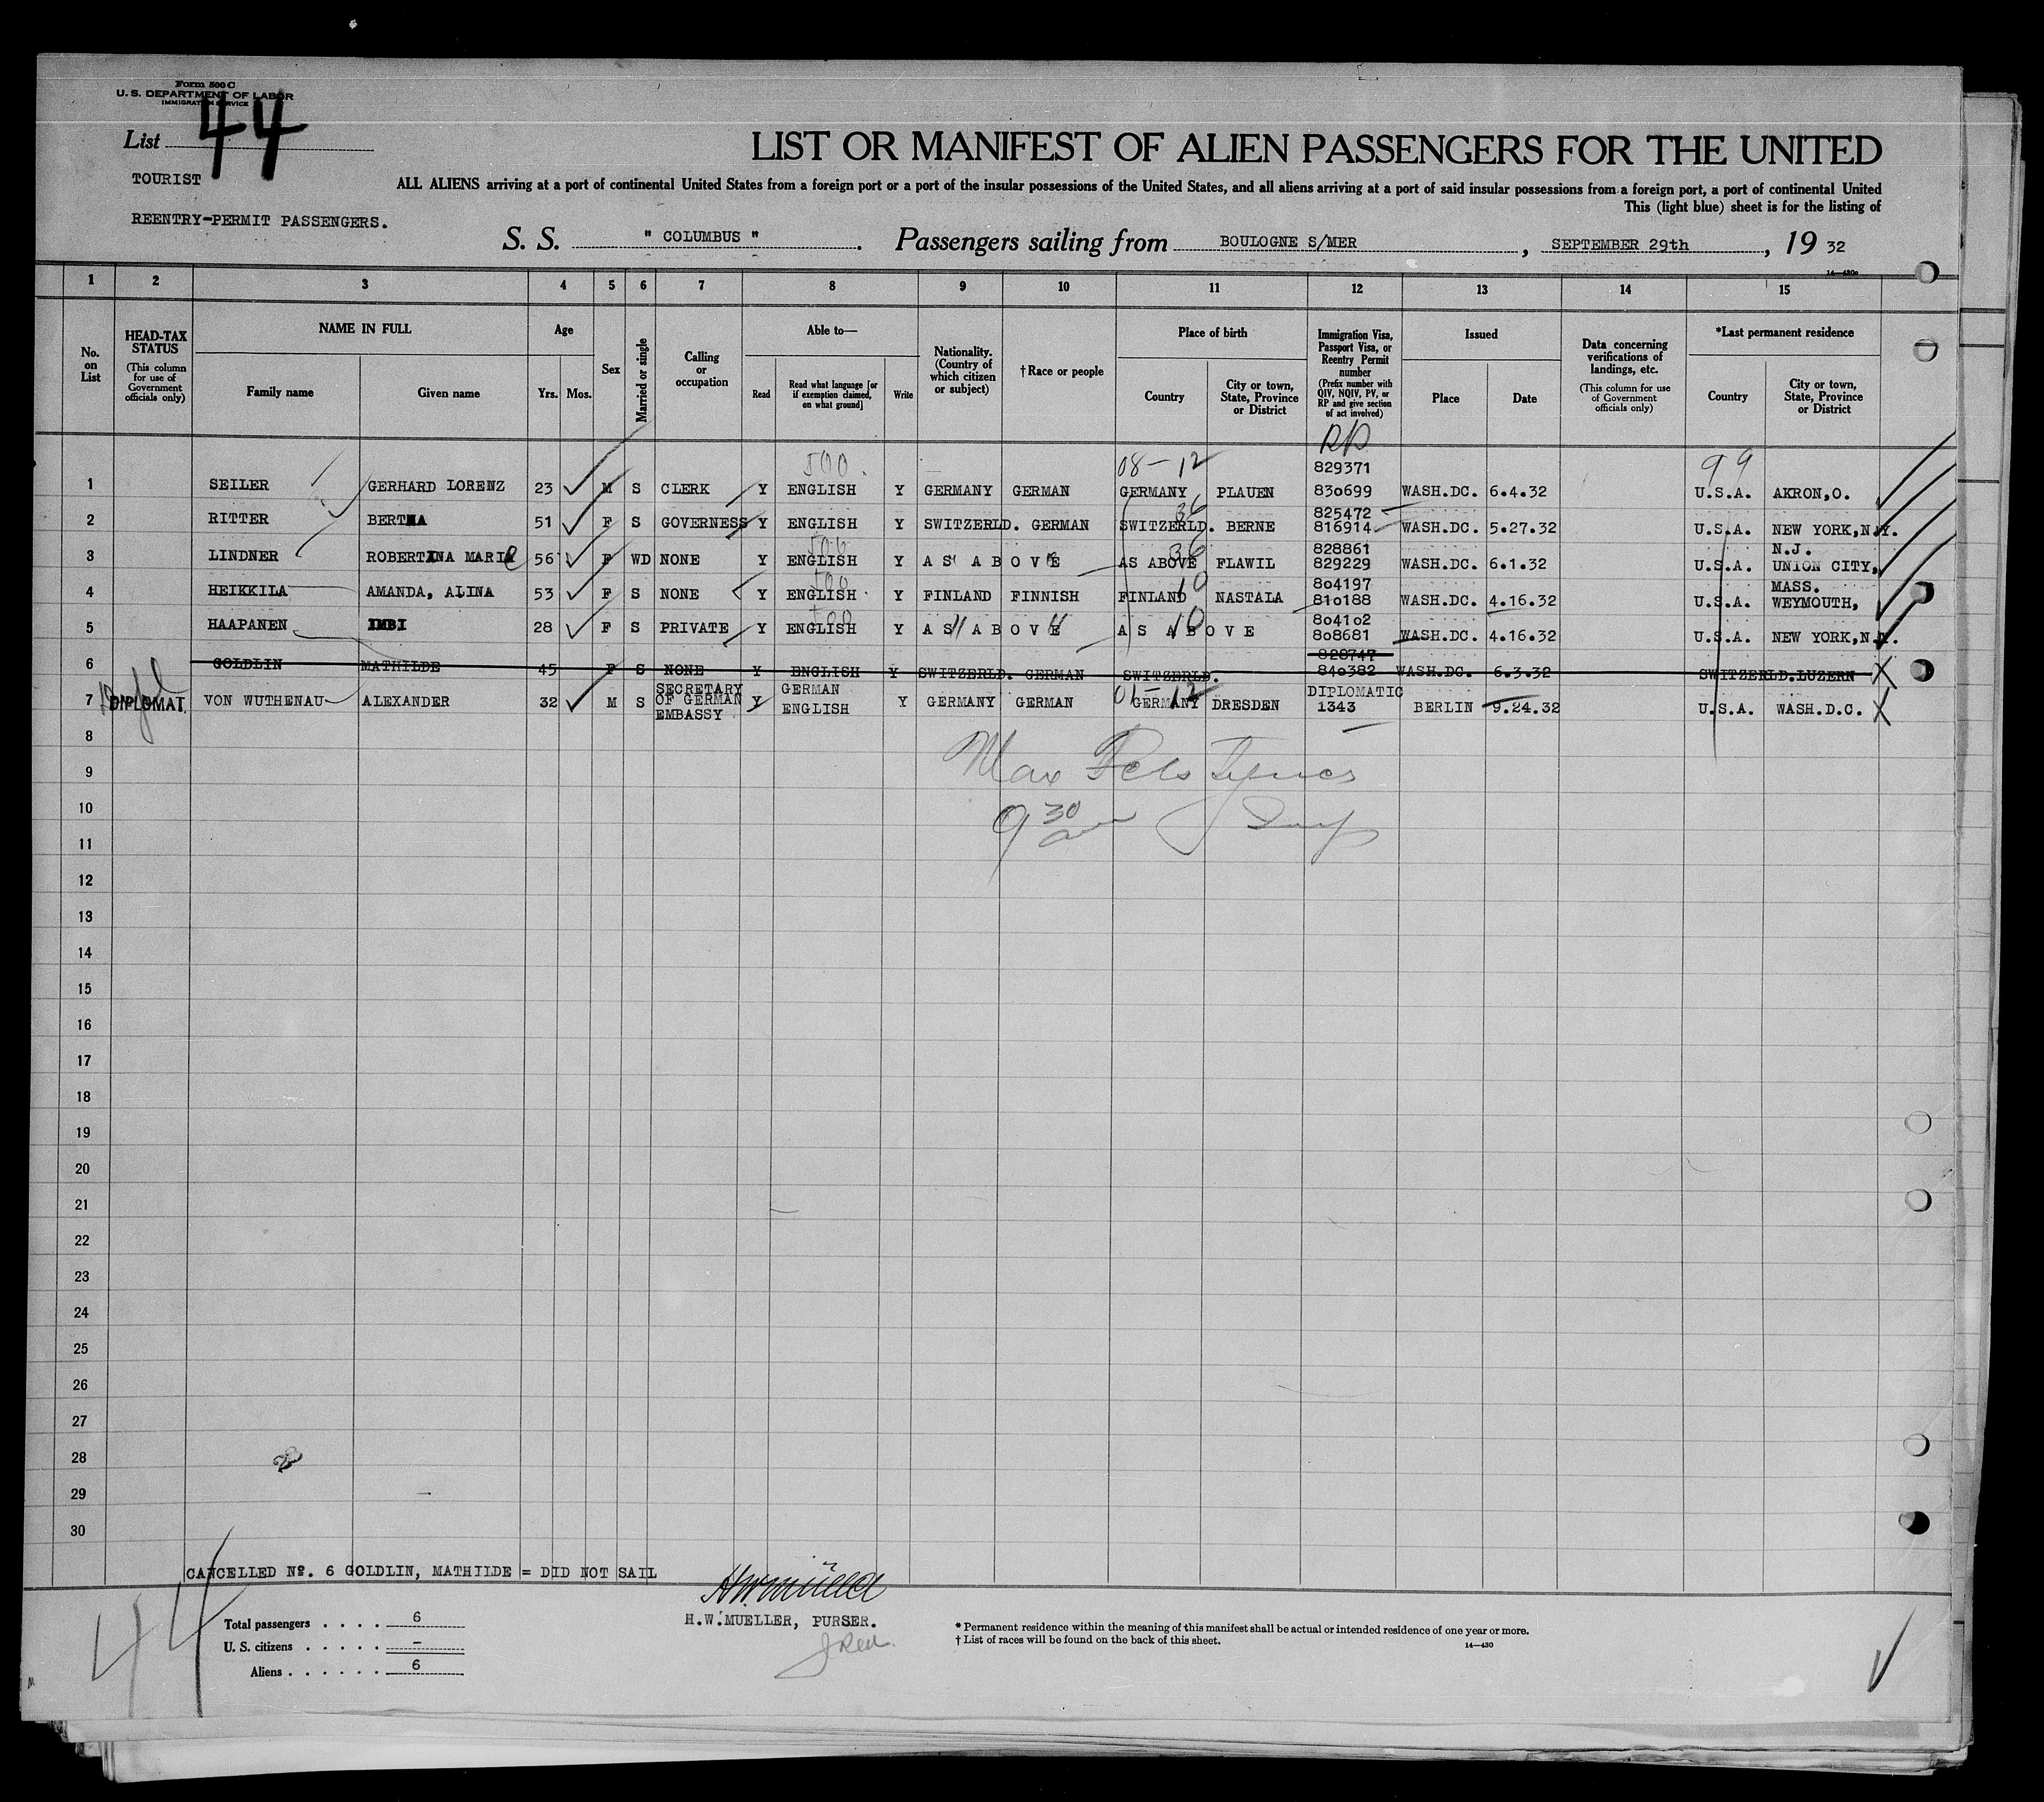 Form 500 C
U. S. DEPARTMENT OF LABOR
IMMIGRATION SERVICE
List 44
LIST OR MANIFEST OF ALIEN PASSENGERS FOR THE UNITED
TOURIST
ALL ALIENS arriving at a port of continental United States from a foreign port or a port of the insular possessions of the United States, and all aliens arriving at a port of said insular possessions from a foreign port, a port of continental United
This (light blue) sheet is for the listing of
REENTRY-PERMIT PASSENGERS.
S. S. " COLUMBUS " . Passengers sailing from BOULOGNE S/MER , SEPTEMBER 29th , 19 32
14—430a
1 2 3 4 5 6 7 8 9 10 11 12 13 14 15
No. on List
HEAD-TAX STATUS
(This column for use of Government officials only)
NAME IN FULL
Family name Given name
Age
Yrs. Mos.
Sex
Married or single
Calling or occupation
Able to—
Read
Read what language [or if exemption claimed, on what ground]
Write
Nationality. (Country of which citizen or subject)
†Race or people
Place of birth
Country
City or town, State, Province or District
Immigration Visa, Passport Visa, or Reentry Permit number
(Prefix number with QIV, NQIV, PV, or RP and give section of act involved)
Issued
Place Date
Data concerning verifications of landings, etc.
(This column for use of Government officials only)
*Last permanent residence
Country
City or town, State, Province or District
RP
500 08-12 829371 99
1 SEILER GERHARD LORENZ 23 M S CLERK Y ENGLISH Y GERMANY GERMAN GERMANY PLAUEN 830699 WASH.DC. 6.4.32 U.S.A. AKRON,O.
36 825472
2 RITTER BERTHA 51 F S GOVERNESS Y ENGLISH Y SWITZERLD. GERMAN SWITZERLD. BERNE 816914 WASH.DC. 5.27.32 U.S.A. NEW YORK,N.Y.
500 36 828861 N.J.
3 LINDNER ROBERTINA MARIE 56 F WD NONE Y ENGLISH Y AS ABOVE AS ABOVE FLAWIL 829229 WASH.DC. 6.1.32 U.S.A. UNION CITY,
500 10 804197 MASS.
4 HEIKKILA AMANDA, ALINA 53 F S NONE Y ENGLISH Y FINLAND FINNISH FINLAND NASTALA 810188 WASH.DC. 4.16.32 U.S.A. WEYMOUTH,
500 10 804102
5 HAAPANEN IMBI 28 F S PRIVATE Y ENGLISH Y AS ABOVE AS ABOVE 808681 WASH.DC. 4.16.32 U.S.A. NEW YORK,N.Y.
828747
6 GOLDLIN MATHILDE 45 F S NONE Y ENGLISH Y SWITZERLD. GERMAN SWITZERLD. 840382 WASH.DC. 6.3.32 SWITZERLD.LUZERN X
SECRETARY GERMAN 01-12 DIPLOMATIC
7 DIPLOMAT. VON WUTHENAU ALEXANDER 32 M S OF GERMAN EMBASSY Y ENGLISH Y GERMANY GERMAN GERMANY DRESDEN 1343 BERLIN 9.24.32 U.S.A. WASH.D.C. X
8
9
10
9 30
11
12
13
14
15
16
17
18
19
20
21
22
23
24
25
26
27
28
29
30
CANCELLED Nº. 6 GOLDLIN, MATHILDE = DID NOT SAIL
44
H.W. Müller
Total passengers . . . . 6
H.W.MUELLER, PURSER.
U. S. citizens . . . . . –
Aliens . . . . . . 6
* Permanent residence within the meaning of this manifest shall be actual or intended residence of one year or more.
† List of races will be found on the back of this sheet.
14—430